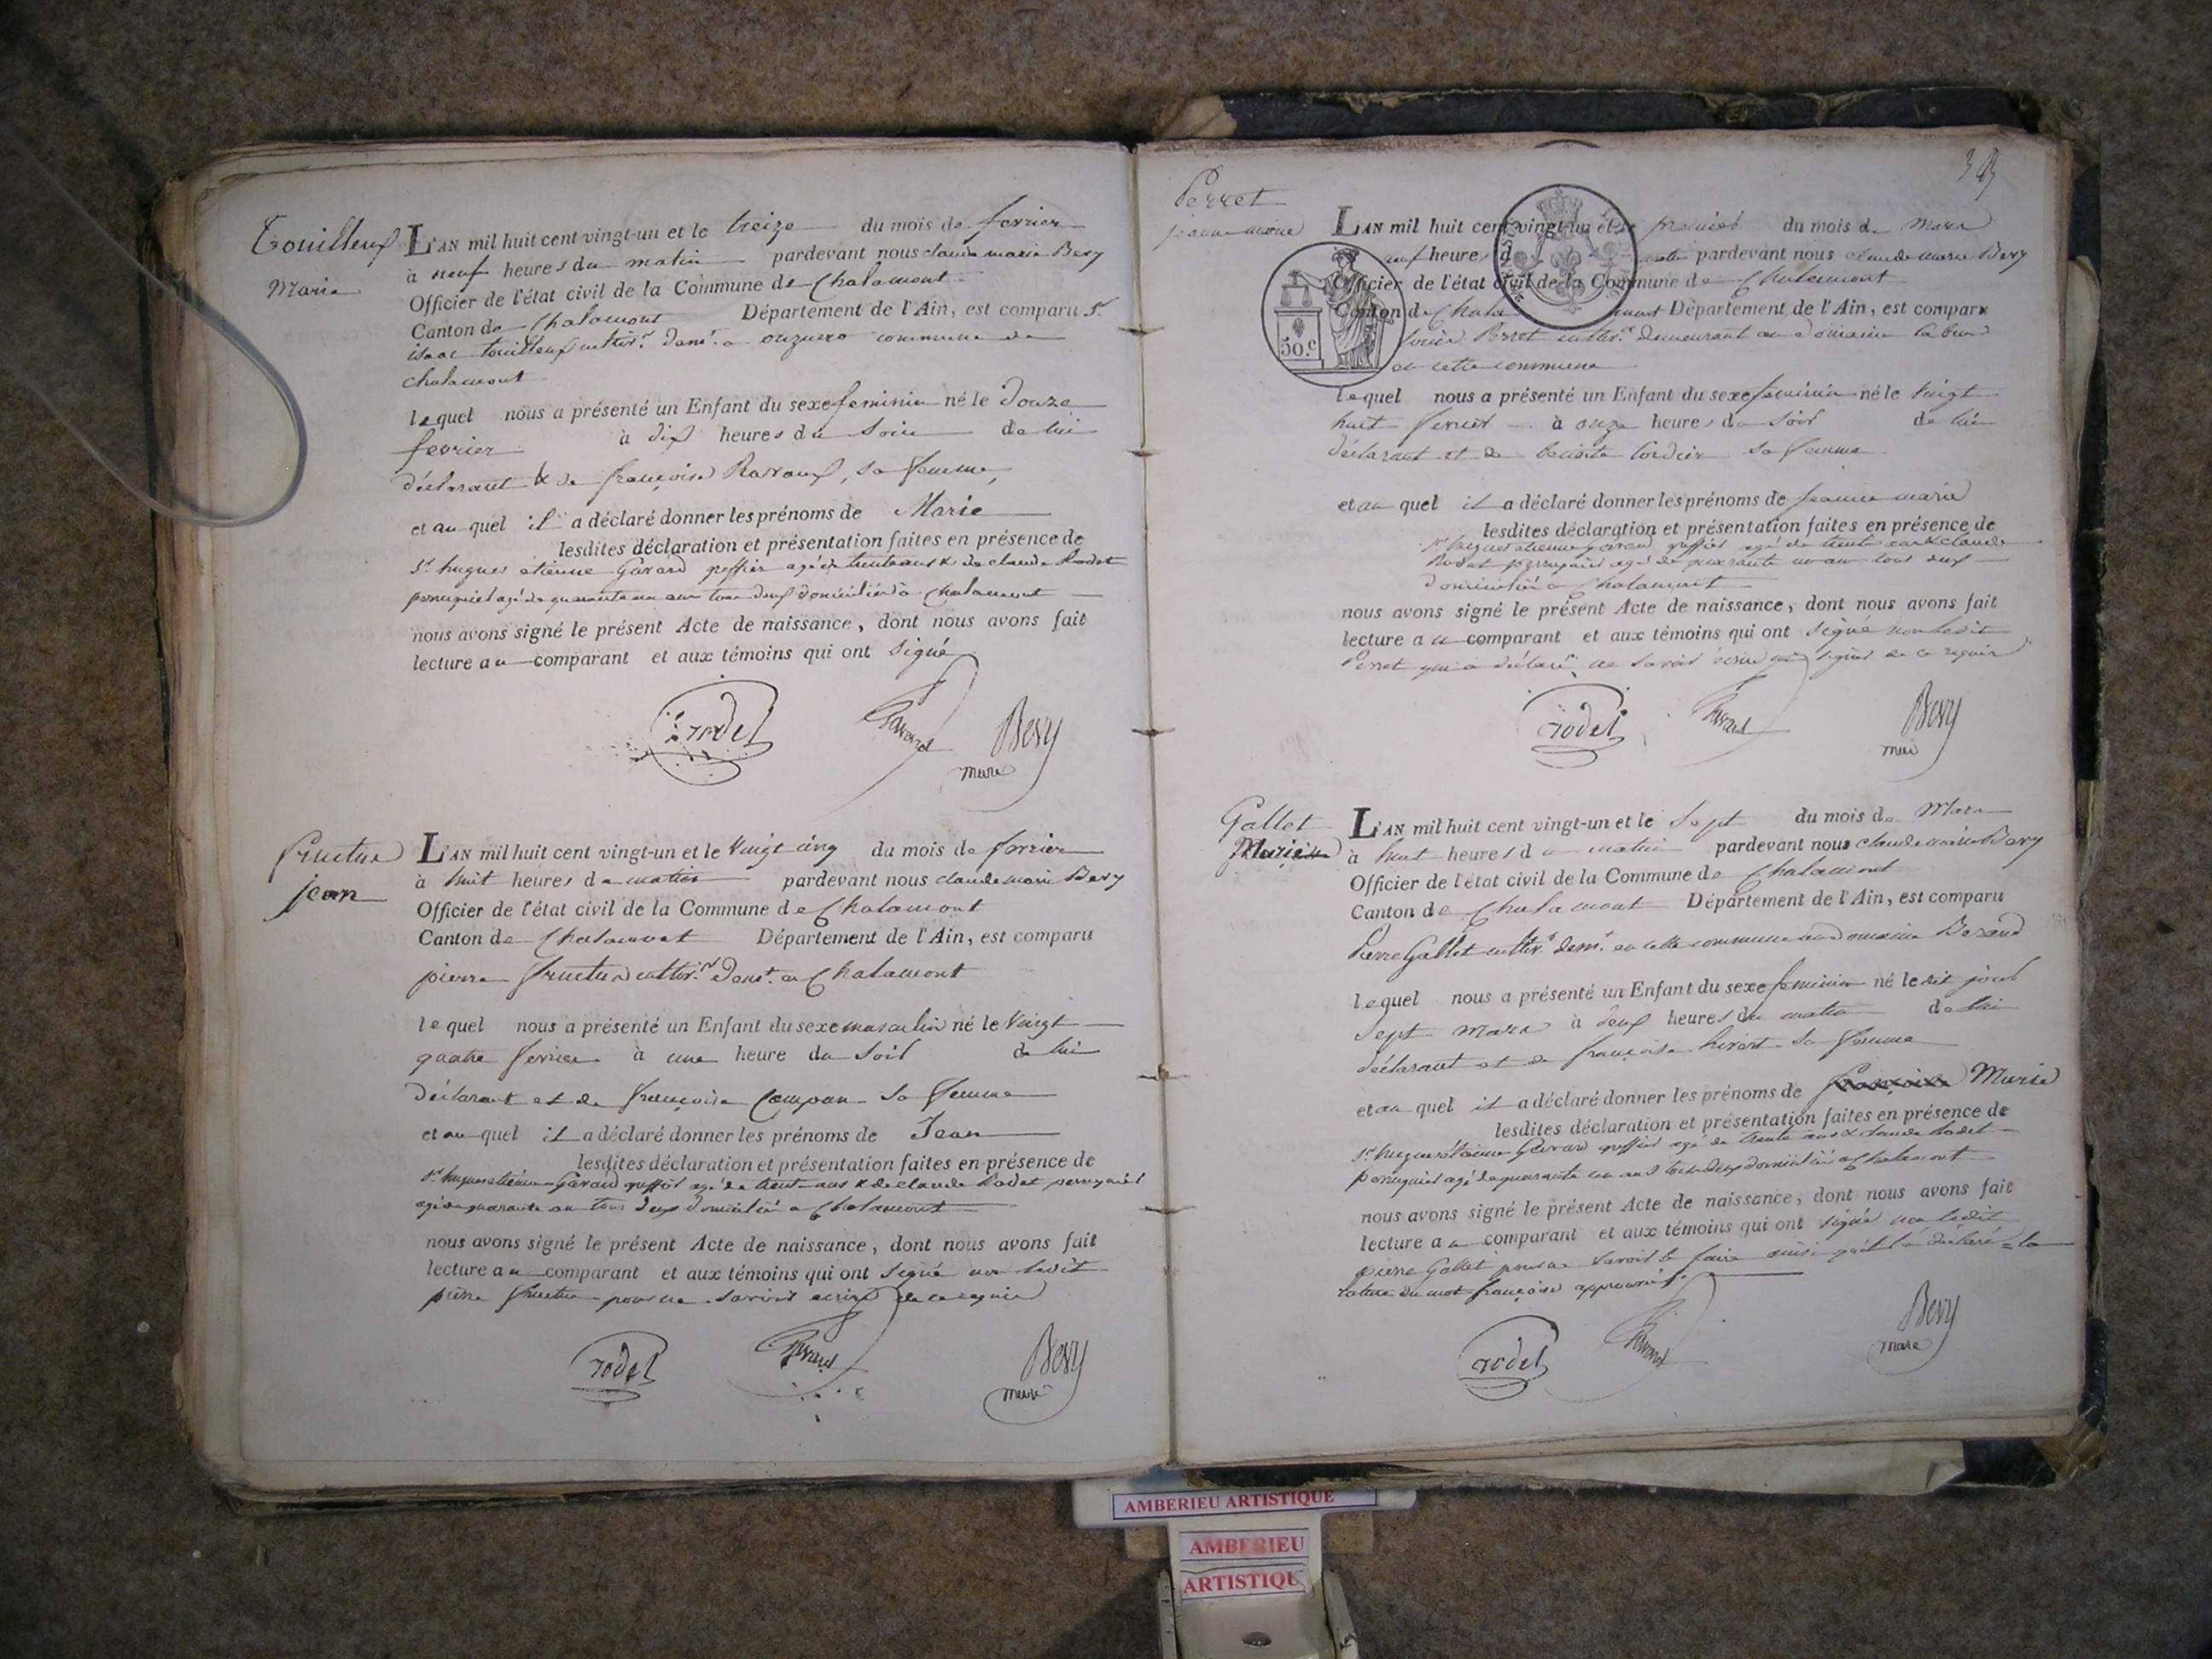 Touilleux
Marie
L'AN mil huit cent vingt-un et le treize du mois de fevrier
à neuf heures du matin pardevant nous claude marie Bevy
Officier de l'état civil de la Commune de Chalamont
Canton de Chalamont Département de l'Ain, est comparu Sr
isaac touilleux cultivr demt a commune de
chalamont
lequel nous a présenté un Enfant du sexe feminin né le Douze
fevrier à dix heures du Soir de lui
déclarant & de françoise Ravaux, sa femme,
et au quel il a déclaré donner les prénoms de Marie
lesdites déclaration et présentation faites en présence de
Sr hugues etienne Gavard greffier agé de trente ans & de claude Rodet
perruquier agé de quarante un ans tous deux domiciliés à Chalamont
nous avons signé le présent Acte de naissance, dont nous avons fait
lecture au comparant et aux témoins qui ont signé
rodet Gavard Bevy
maire
fructus
jean
L'AN mil huit cent vingt-un et le Vingt cinq du mois de fevrier
à huit heures du matin pardevant nous claude marie Bevy
Officier de l'état civil de la Commune de Chalamont
Canton de Chalamont Département de l'Ain, est comparu
pierre cultivr demt a Chalamont
lequel nous a présenté un Enfant du sexe masculin né le Vingt
quatre fevrier à une heure du Soir de lui
déclarant et de françoise Compan Sa femme
et au quel il a déclaré donner les prénoms de Jean
lesdites déclaration et présentation faites en présence de
Sr hugues etienne Gavard greffier agé de trente ans & de claude Rodet perruquier
agé de quarante an tous deux domiciliés a Chalamont
nous avons signé le présent Acte de naissance, dont nous avons fait
lecture au comparant et aux témoins qui ont signé non ledit
pierre pour ne savoir ecrire de ce requis
rodet Gavard Bevy
maire
Perret
jeanne marie
L'AN mil huit cent vingt-un et le premier du mois de Mars
neuf heures d matin pardevant nous claude marie Bevy
Officier de l'état civil de la Commune de Chalamont
Canton de Chalamont Département de l'Ain, est comparu
50.c
Perret cultivr demeurant au Domaine
en cette commune
lequel nous a présenté un Enfant du sexe feminin né le Vingt
huit fevrier à onze heures du Soir de lui
déclarant et de benoite Cordier sa femme
et au quel il a déclaré donner les prénoms de jeanne marie
lesdites déclaration et présentation faites en présence de
Sr hugues etienne Gavard greffier agé de trente ans & claude
Rodet perruquier agé de quarante un an tous deux
domiciliés a Chalamont
nous avons signé le présent Acte de naissance, dont nous avons fait
lecture au comparant et aux témoins qui ont signé non ledit
Perret qui a déclaré ne savoir écrire ni signer de ce requis
rodet Gavard Bevy
maire
Gallet
Marie
L'AN mil huit cent vingt-un et le Sept du mois de Mars
à huit heures du matin pardevant nous claude marie Bevy
Officier de l'état civil de la Commune de Chalamont
Canton de Chalamont Département de l'Ain, est comparu
Pierre Gallet cultivr demt en cette commune au Domaine Berand
lequel nous a présenté un Enfant du sexe feminin né le dit jour
Sept Mars à deux heures du matin de lui
déclarant et de françoise Sa femme
et au quel il a déclaré donner les prénoms de françoise Marie
lesdites déclaration et présentation faites en présence de
Sr hugues étienne Gavard greffier agé de trente ans & claude Rodet
perruquier agé de quarante un ans tous deux domiciliés a Chalamont
nous avons signé le présent Acte de naissance, dont nous avons fait
lecture au comparant et aux témoins qui ont signé non ledit
pierre Gallet pour ne savoir le faire ainsi qu'il l'a déclaré = la
rature du mot françoise approuvée.
rodet Gavard Bevy
maire
AMBERIEU ARTISTIQUE
AMBERIEU
ARTISTIQUE